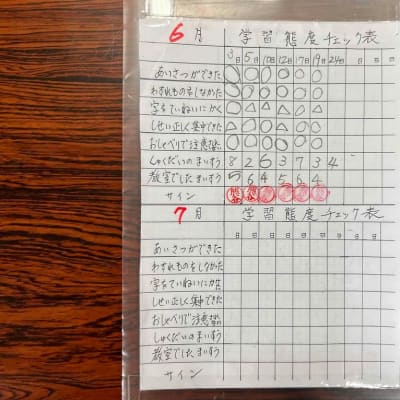 6月 学習態度チェック表
3日 5日 10日 12日 17日 19日 24日 日 日 日
あいさつができた ○ ○ ○ ○ ○ ○
わすれものをしなかった ○ ○ ○ ○ ○ ○
字をていねいにかく ○ △ △ △ ○ △
しせい正しく集中できた △ ○ ○ △ ○ ○
おしゃべりで注意
しゅくだいのまいすう 8 2 6 3 7 3 4
教室でしたまいすう 5 6 4 5 6 4
サイン
7月 学習態度チェック表
日 日 日 日 日 日 日 日 日 日
あいさつができた
わすれものをしなかった
字をていねいにかく
しせい正しく集中できた
おしゃべりで注意
しゅくだいのまいすう
教室でしたまいすう
サイン